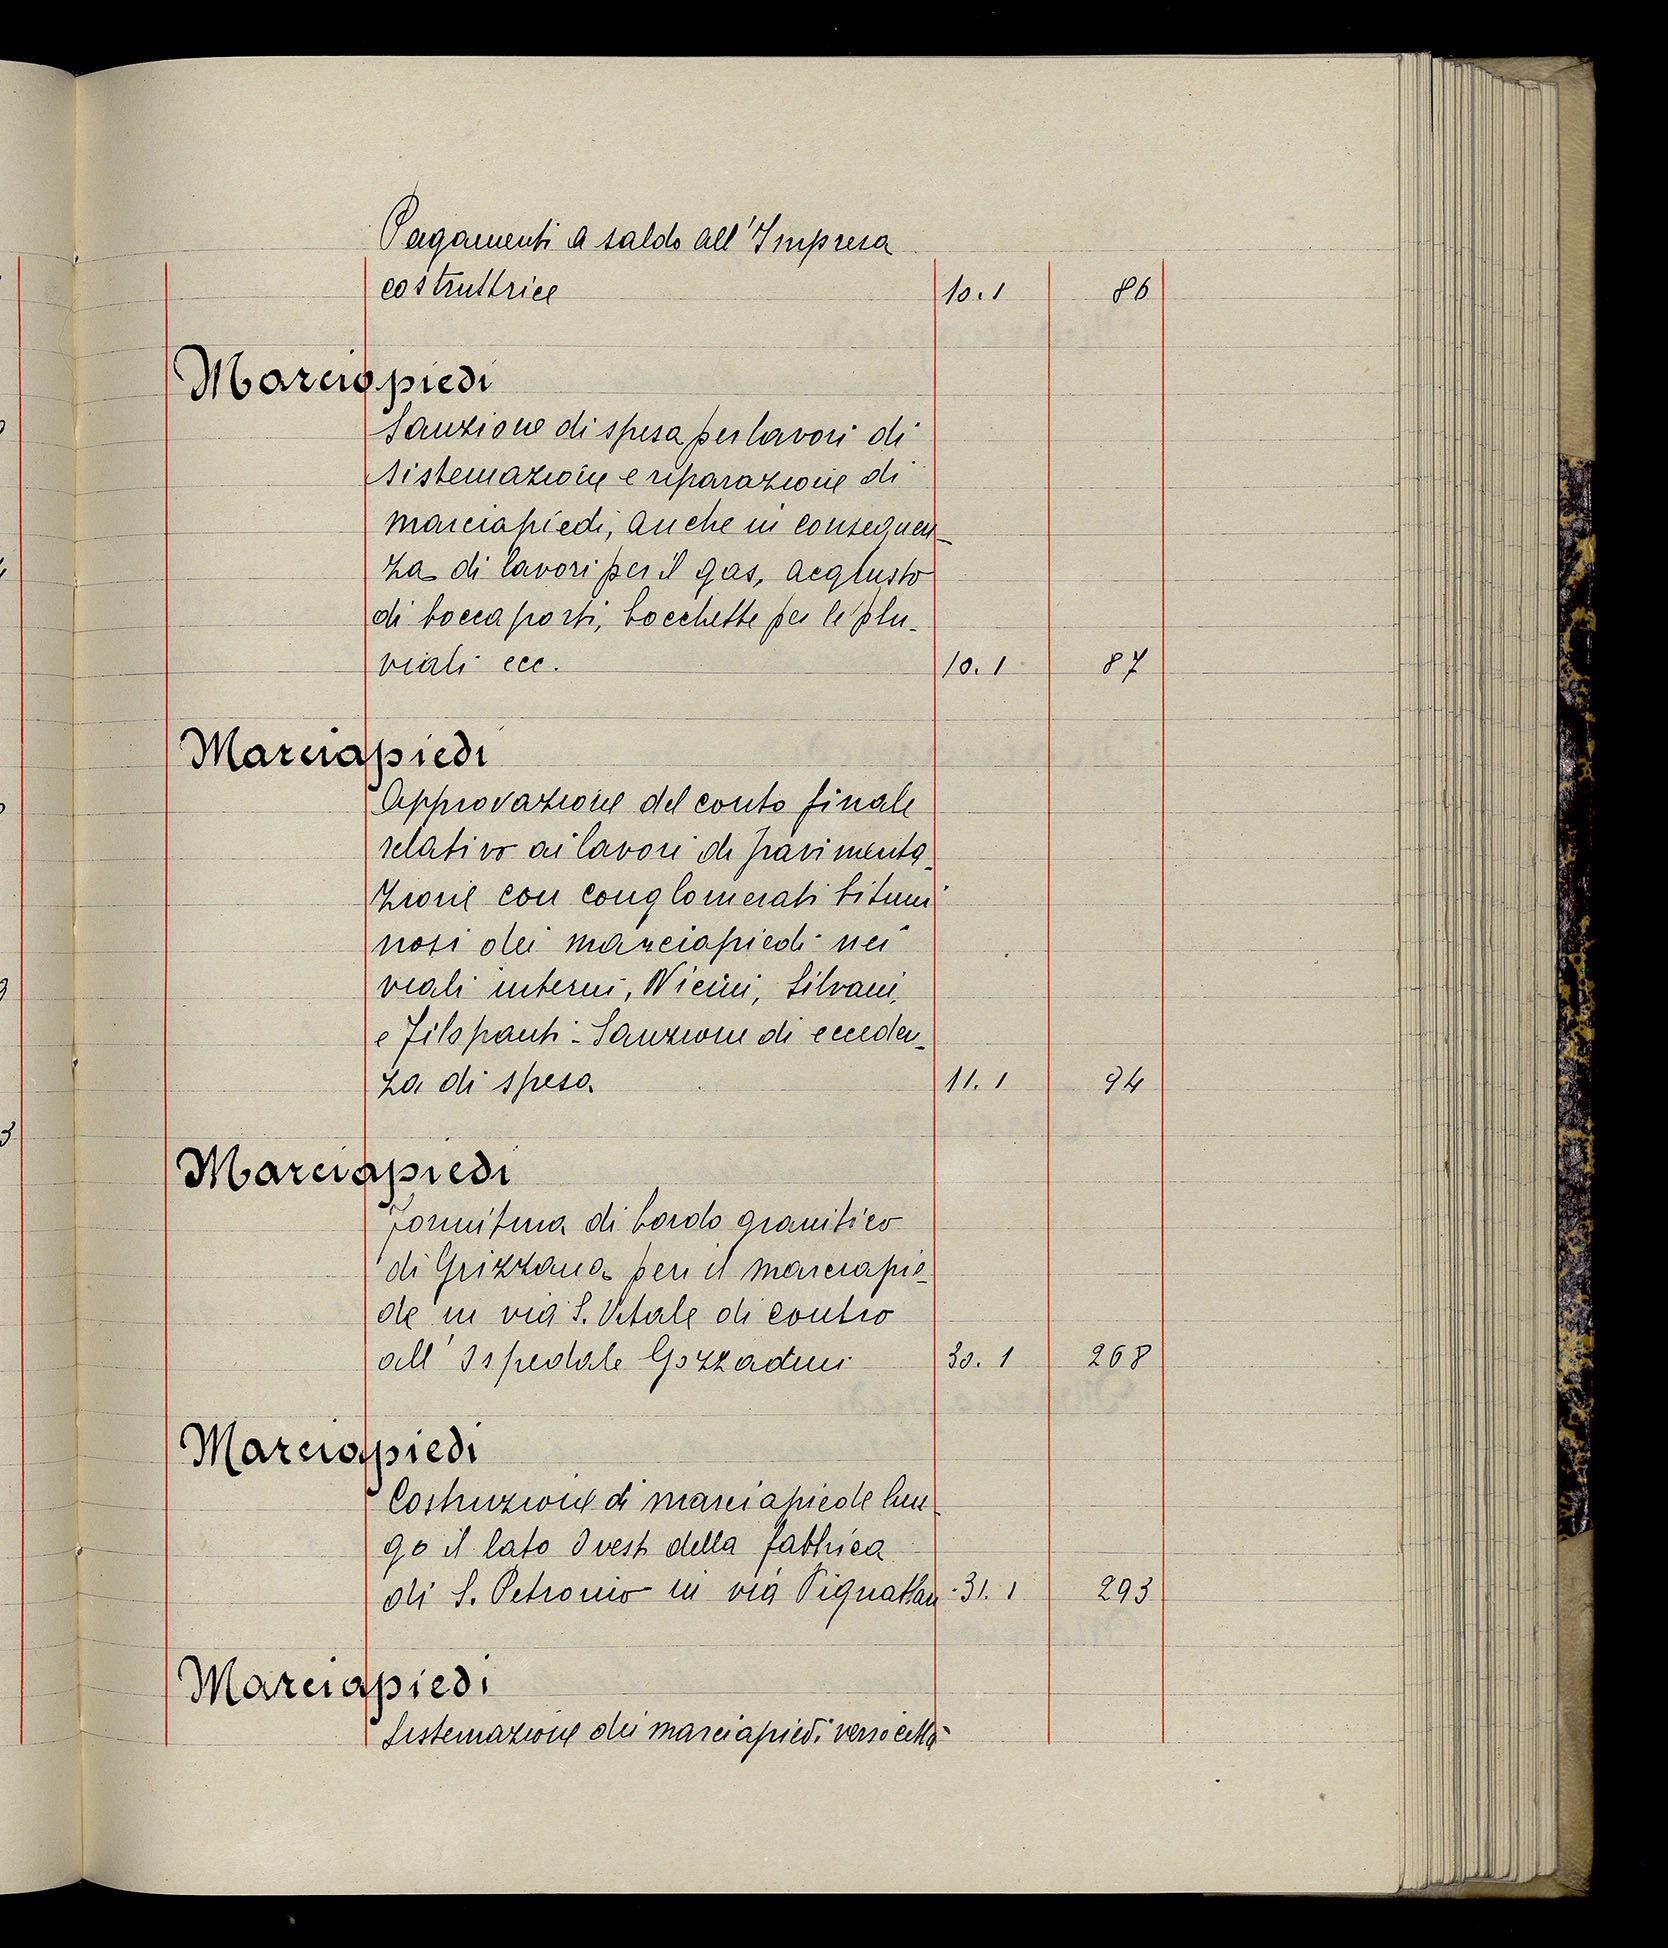 Pagamenti a saldo all'Impresa
costruttrice 10.1 86
Marciapiedi
Sanzione di spesa per lavori di
sistemazione e riparazione di
marciapiedi, anche in conseguen-
za di lavori per il gas, acquisto
di bocca porti, bocchette per le plu-
viali ecc. 10.1 87
Marciapiedi
Approvazione del conto finale
relativo ai lavori di pavimenta-
zione con conglomerati bitumi
nosi dei marciapiedi nei
viali interni, Vicini, Silvani,
e Filopanti - Sanzione di ecceden-
za di spesa 11.1 94
Marciapiedi
Fornitura di bordo granitico
di Grizzana per il marciapie-
de in via S. Vitale di contro
all'Ospedale Gozzadini 30.1 268
Marciapiedi
Costruzione di marciapiede lun-
go il lato Ovest della fabbrica
di S. Petronio in via Pignattari 31.1 293
Marciapiedi
Sistemazione dei marciapiedi verso città